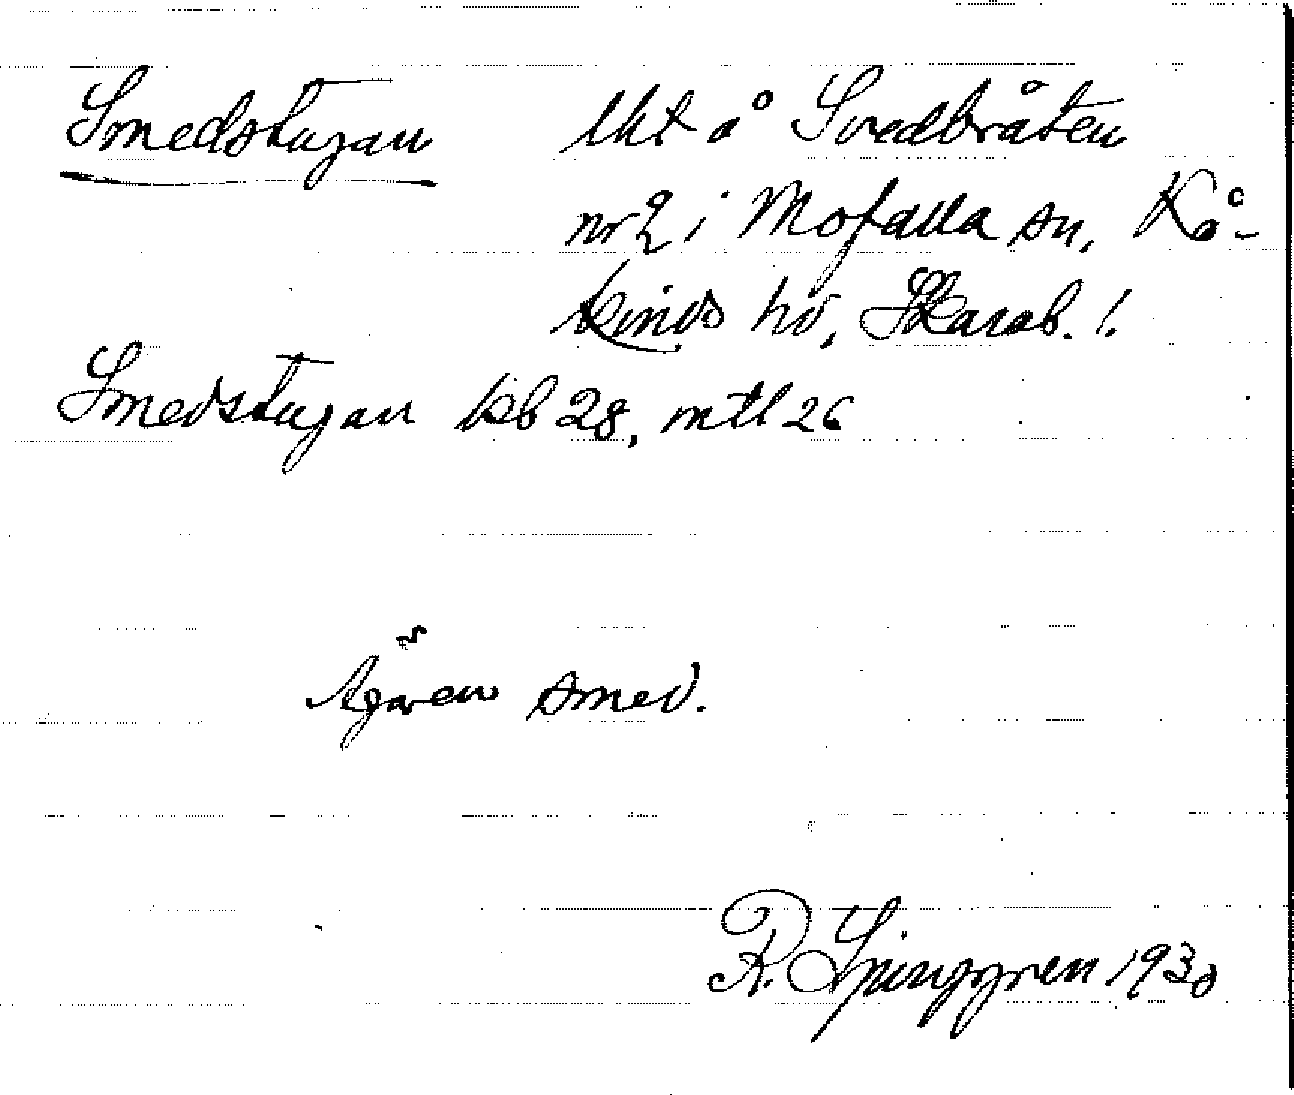 Smedstugan lht å Svedbråten
nr 2 i Mofalla sn, Kå-
kinds hd, Skarab. l.
Smedstugan kb 28, mtl 26
Ägaren smed.
R. Ljunggren 1930